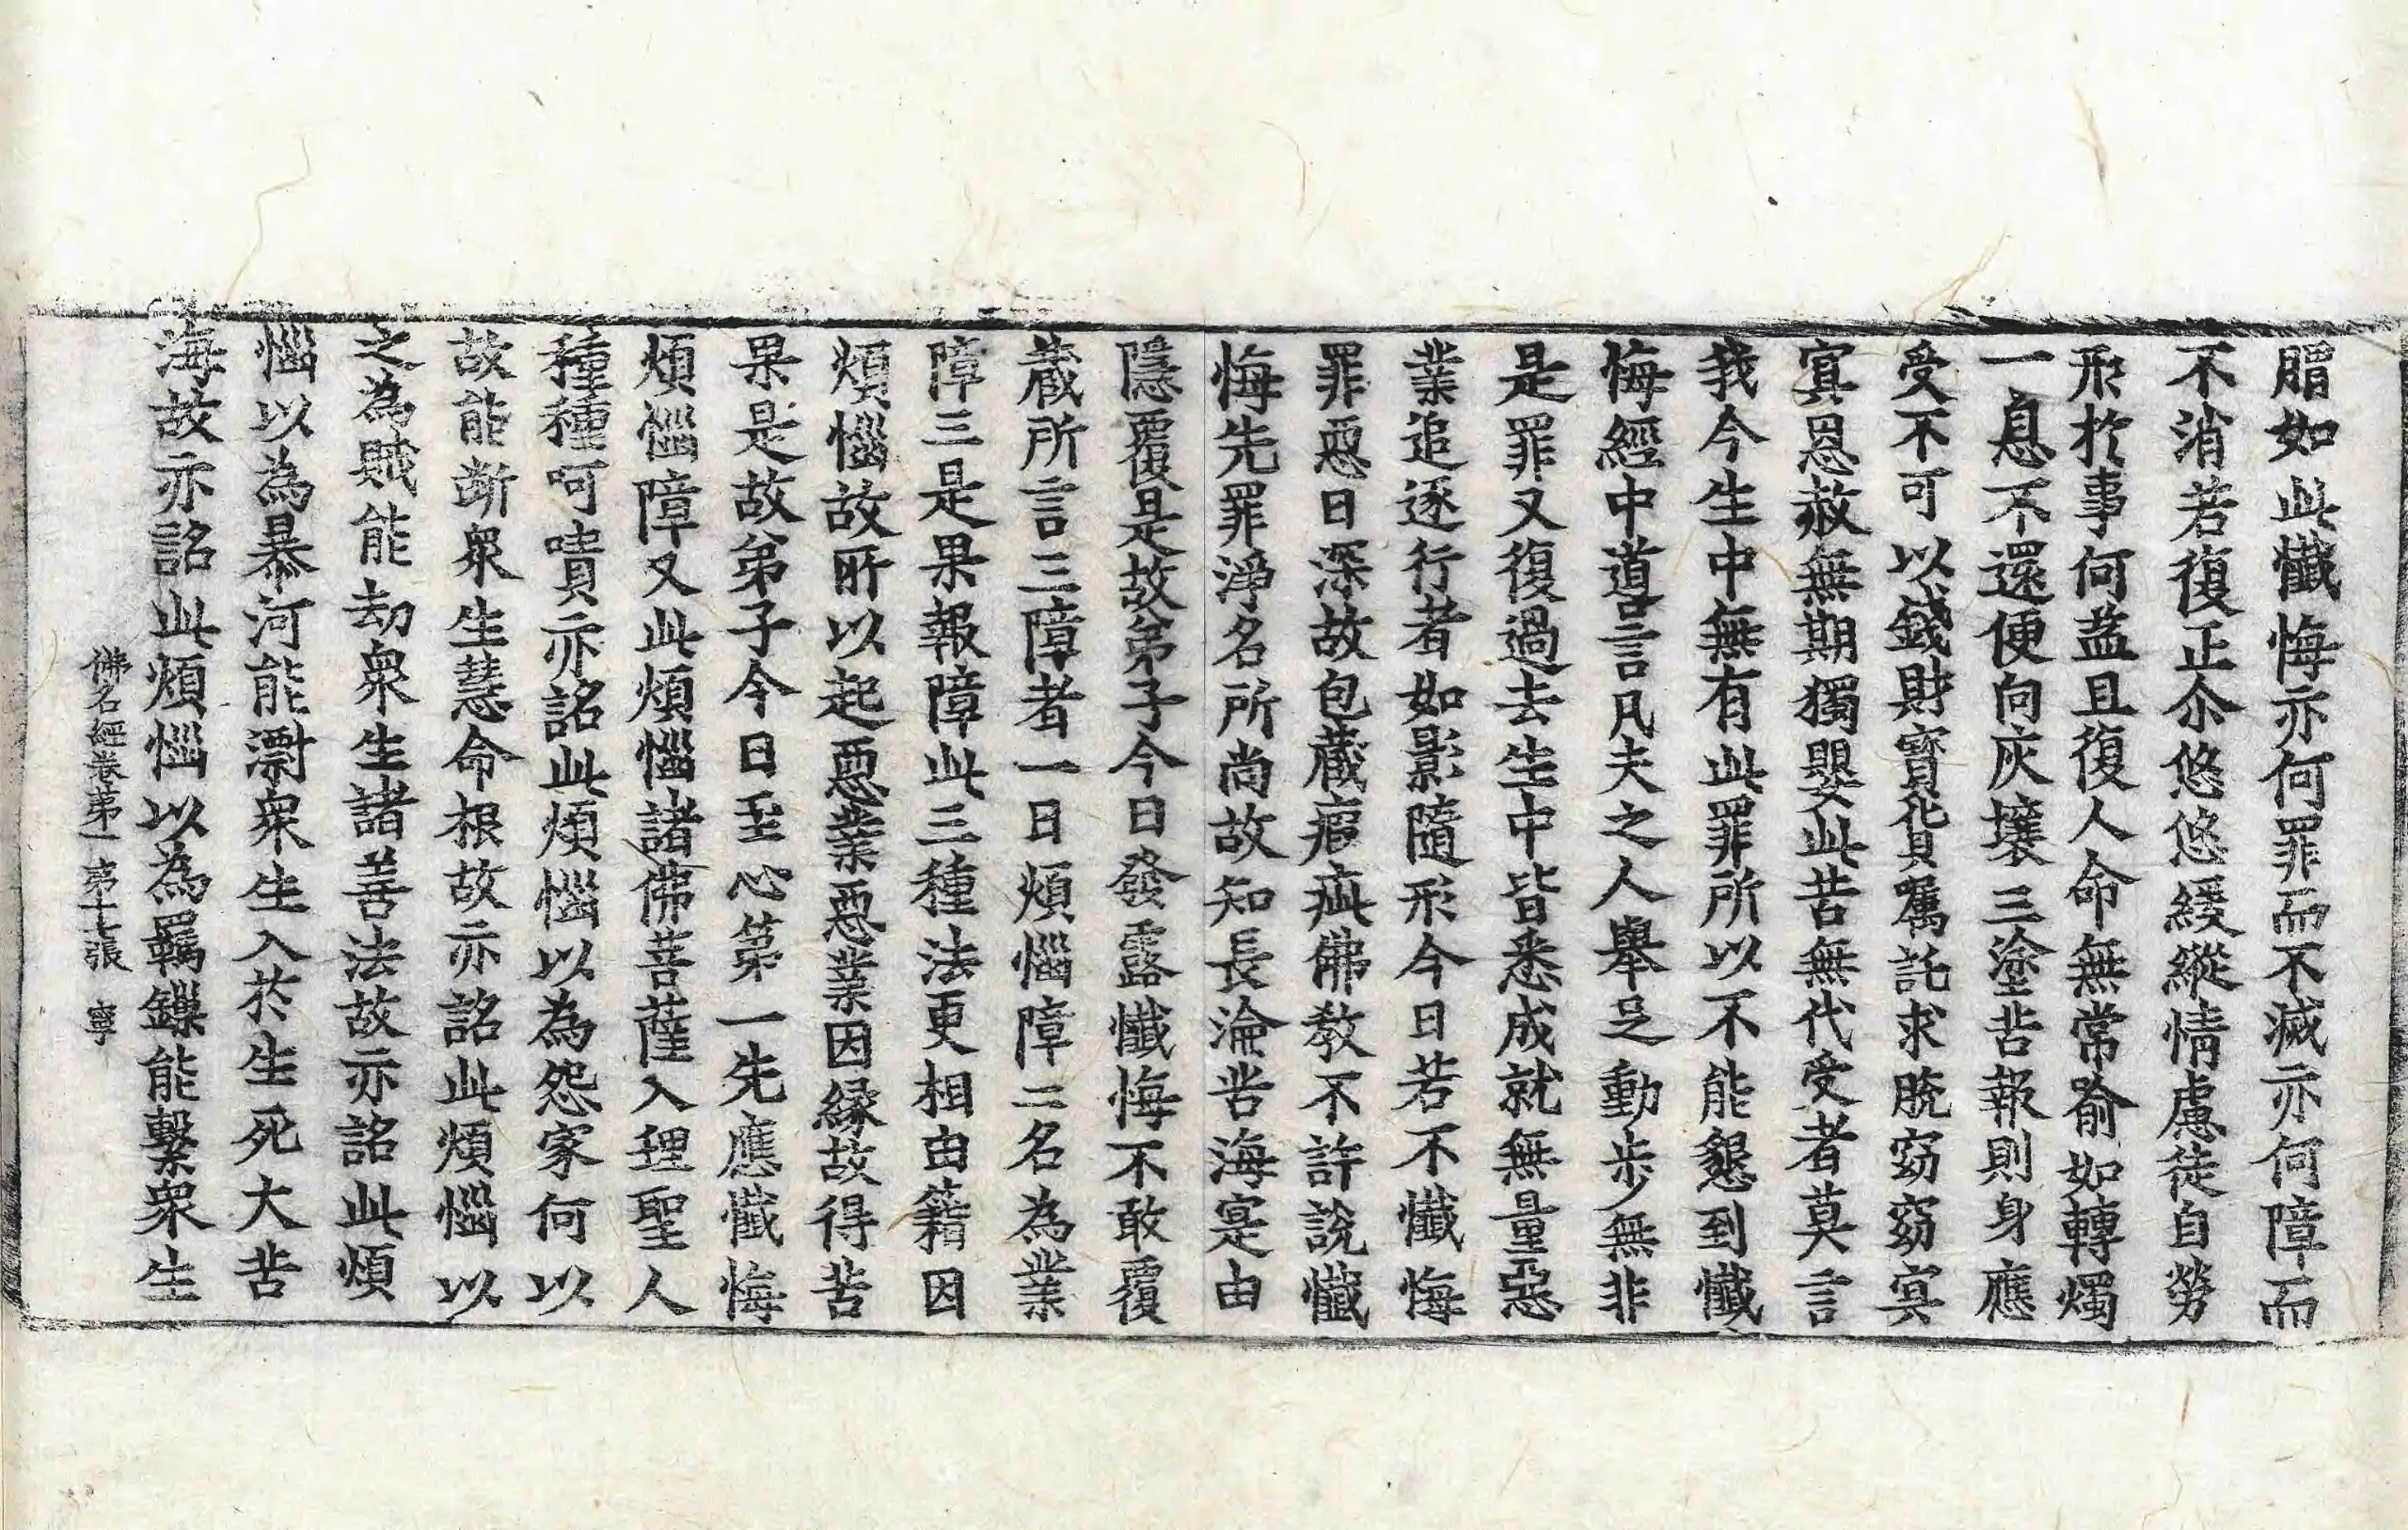 脂如此懺悔亦何罪而不滅亦何障而
不消若復正尒悠悠緩縱情慮徒自勞
形於事何益且復人命無常喻如轉燭
一息不還便向灰壤三塗苦報則身應
受不可以錢財寳貨囑託求脫窈窈㝠
㝠恩赦無期獨嬰此苦無代受者莫言
我今生中無有此罪所以不能懇到懺
悔經中道言凡夫之人舉足動步無非
是罪又復過去生中皆悉成就無量惡
業追逐行者如影隨形今日若不懺悔
罪惡日深故包蔵瘕疵佛教不許說懺
悔先罪淨名所尚故知長淪苦海寔由
隱覆是故弟子今日發露懺悔不敢覆
蔵所言三障者一曰煩惱障二名為業
障三是果報障此三種法更相由籍因
煩惱故所以起惡業惡業因縁故得苦
果是故弟子今日至心第一先應懺悔
煩惱障又此煩惱諸佛菩薩入理聖人
種種呵責亦詺此煩惱以為怨家何以
故能断衆生慧命根故亦詺此煩惱以
之為賊能劫衆生諸善法故亦詺此煩
惱以為暴河能漂衆生入於生死大苦
海故亦詺此煩惱以為羈鏁能繫衆生
佛名經卷第一 第十七張 寧